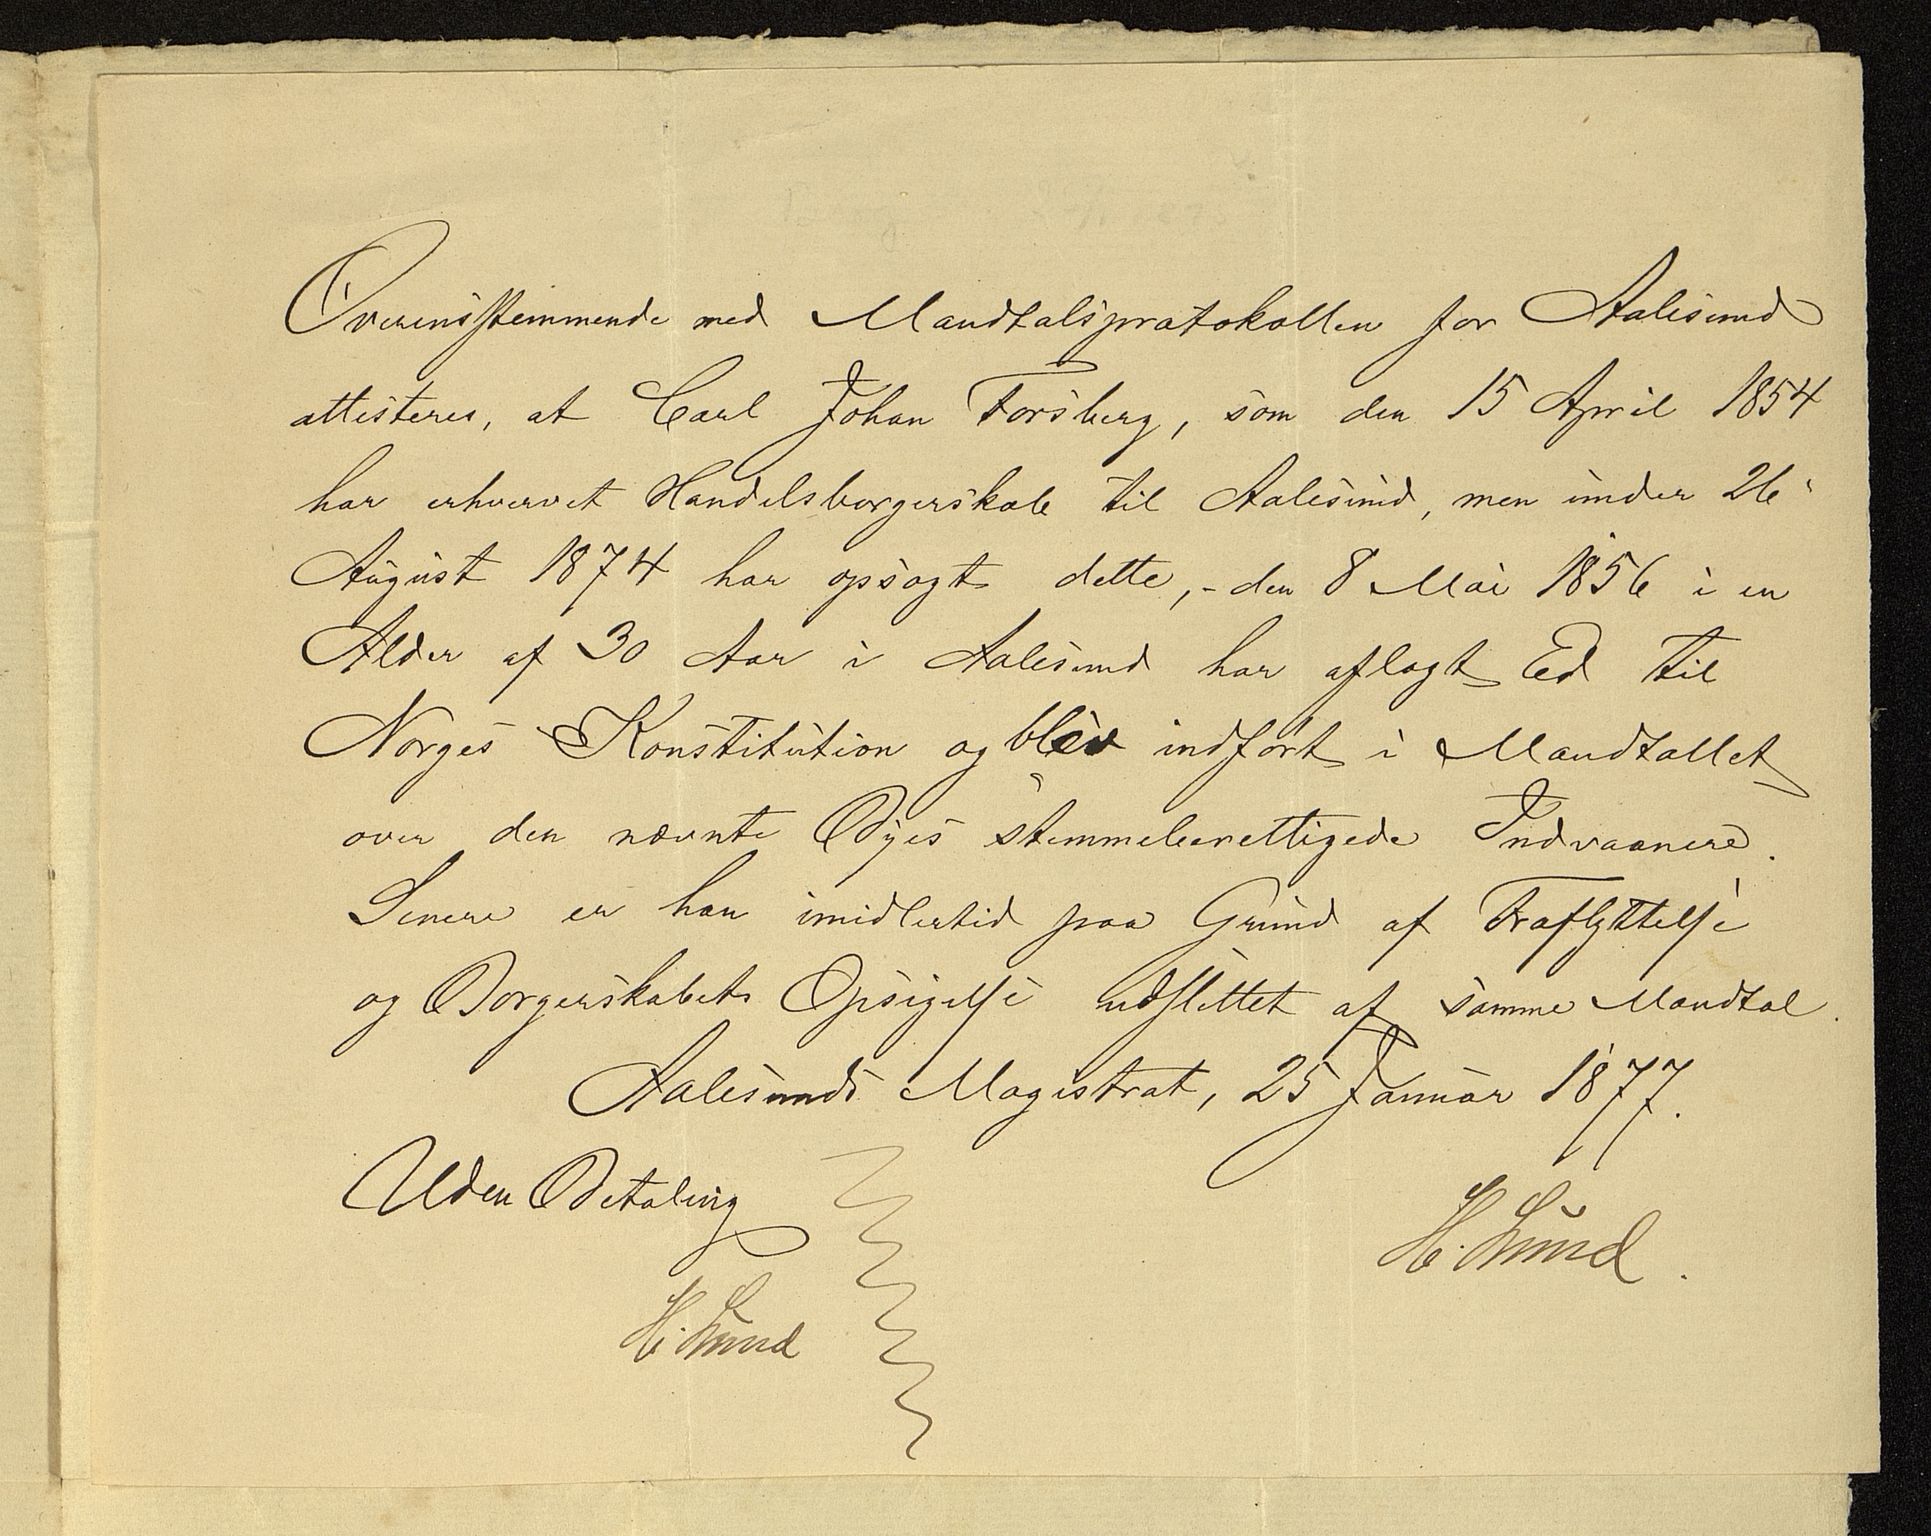 Overensstemmende med Mandtalsprotokollen for Aalesund
attesteres, at Carl Johan Forsberg, som den 15 April 1854
har erhvervet Handelsborgerskab til Aalesund, men under 26
August 1874 har opsagt dette, - den 8 Mai 1856 i en
Alder af 30 Aar i Aalesund har aflagt Ed til
Norges Konstitution og blev indført i Mandtallet
over den nævnte Byes stemmeberettigede Indvaanere.
Senere er han imidlertid paa Grund af Fraflyttelse
og Borgerskabets Opsigelse udslettet af samme Mandtal.
Aalesunds Magistrat, 25 Januar 1877.
Uden Betaling
H. Lund.
H. Lund